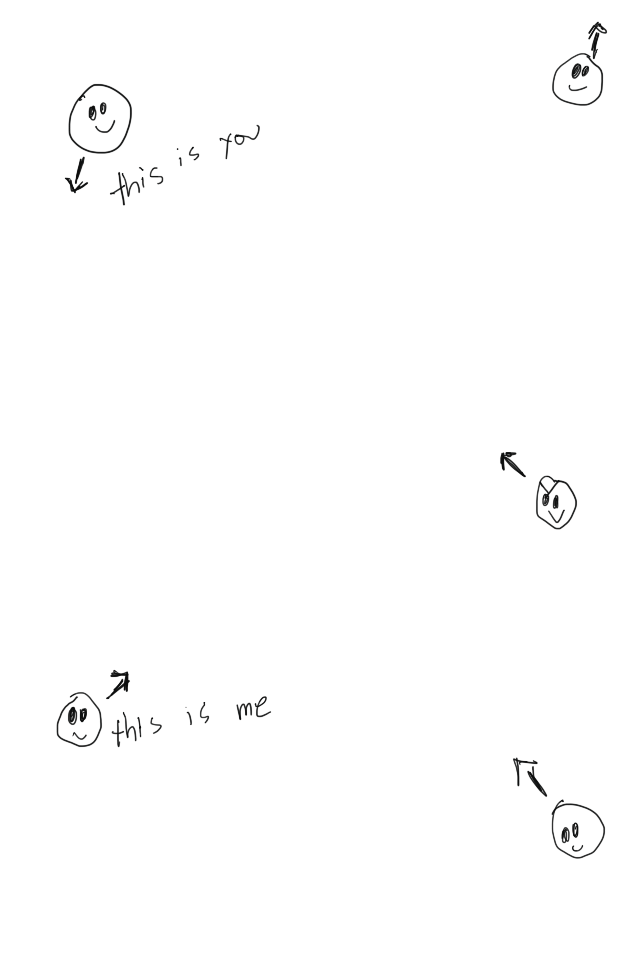 this is you
this is me